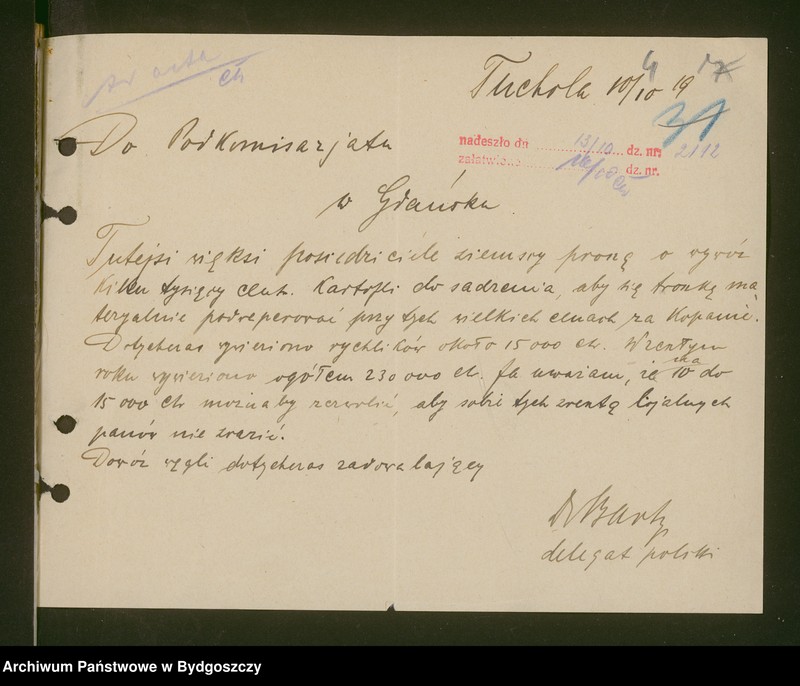 Tuchola 10/10 19
31
Do Podkomisarjatu
nadeszło dn 13/10 dz. nr. 2112
załatwiono dz. nr.
w Gdańsku.
Tutejsi więksi posiedziciele ziemscy proszą o wywóz
kilku tysięcy cent. Kartofli do sadzenia, aby się troszkę ma
teryalnie podreperować przy tych wielkich cenach za kopanie.
Dotychczas wywieziono rychlików około 15 000 ctr. W zeszłym
roku wywieziono ogółem 230 000 ctr. Ja uważam, że na 10 do
15 000 ctr możnaby zezwolić, aby sobie tych zresztą lojalnych
panów nie zrazić.
Dowóz węgli dotychczas zadowalający
Dr Bartz
delegat polski
Archiwum Państwowe w Bydgoszczy